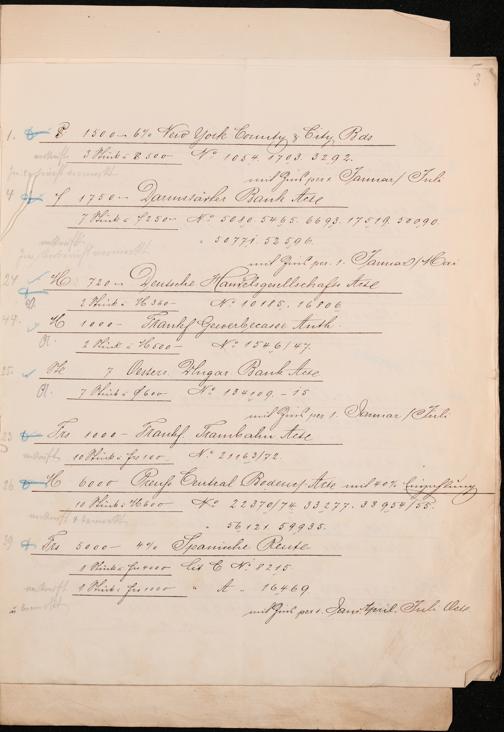 3
1. $ 1500 6% New York County & City Bds
3 Stück à $ 500 No 1054. 1703. 3292.
mit Zins per 1. Januar / Juli
4 f 1750 Darmstädter Bank Acte
7 Stück à f 250 No 5030. 5465. 6693. 17519. 50090.
" 50771. 52596.
mit Zins per 1. Januar / Mai
24 M 720 Deutsche Handelsgesellschafts Acte
2 Stück à M 360 No 10185. 16806
44. M 1000 Frankf Gewerbecasse Anth.
2 Stück à M 500 No 1546/47.
25. 7 Oesterr. Ungar Bank Acte
7 Stück à f 600 No 134109 - 15
mit Zins per 1. Januar / Juli
23 Frs 1000 Frankf. Trambahn Acte
10 Stück à frs 100 No 21163/72.
26 M 6000 Preuß Central Bodencr. Acte mit 40% Einzahlung
10 Stück à M 600 No 22370/74. 33277. 38954/55.
" 56121. 59935.
39 Frs 5000 4% Spanische Rente
1 Stück à frs 4000 Lit C No 8215
1 Stück à frs 1000 " A " 16469
mit Zins per 1. Jan. April. Juli Oct.